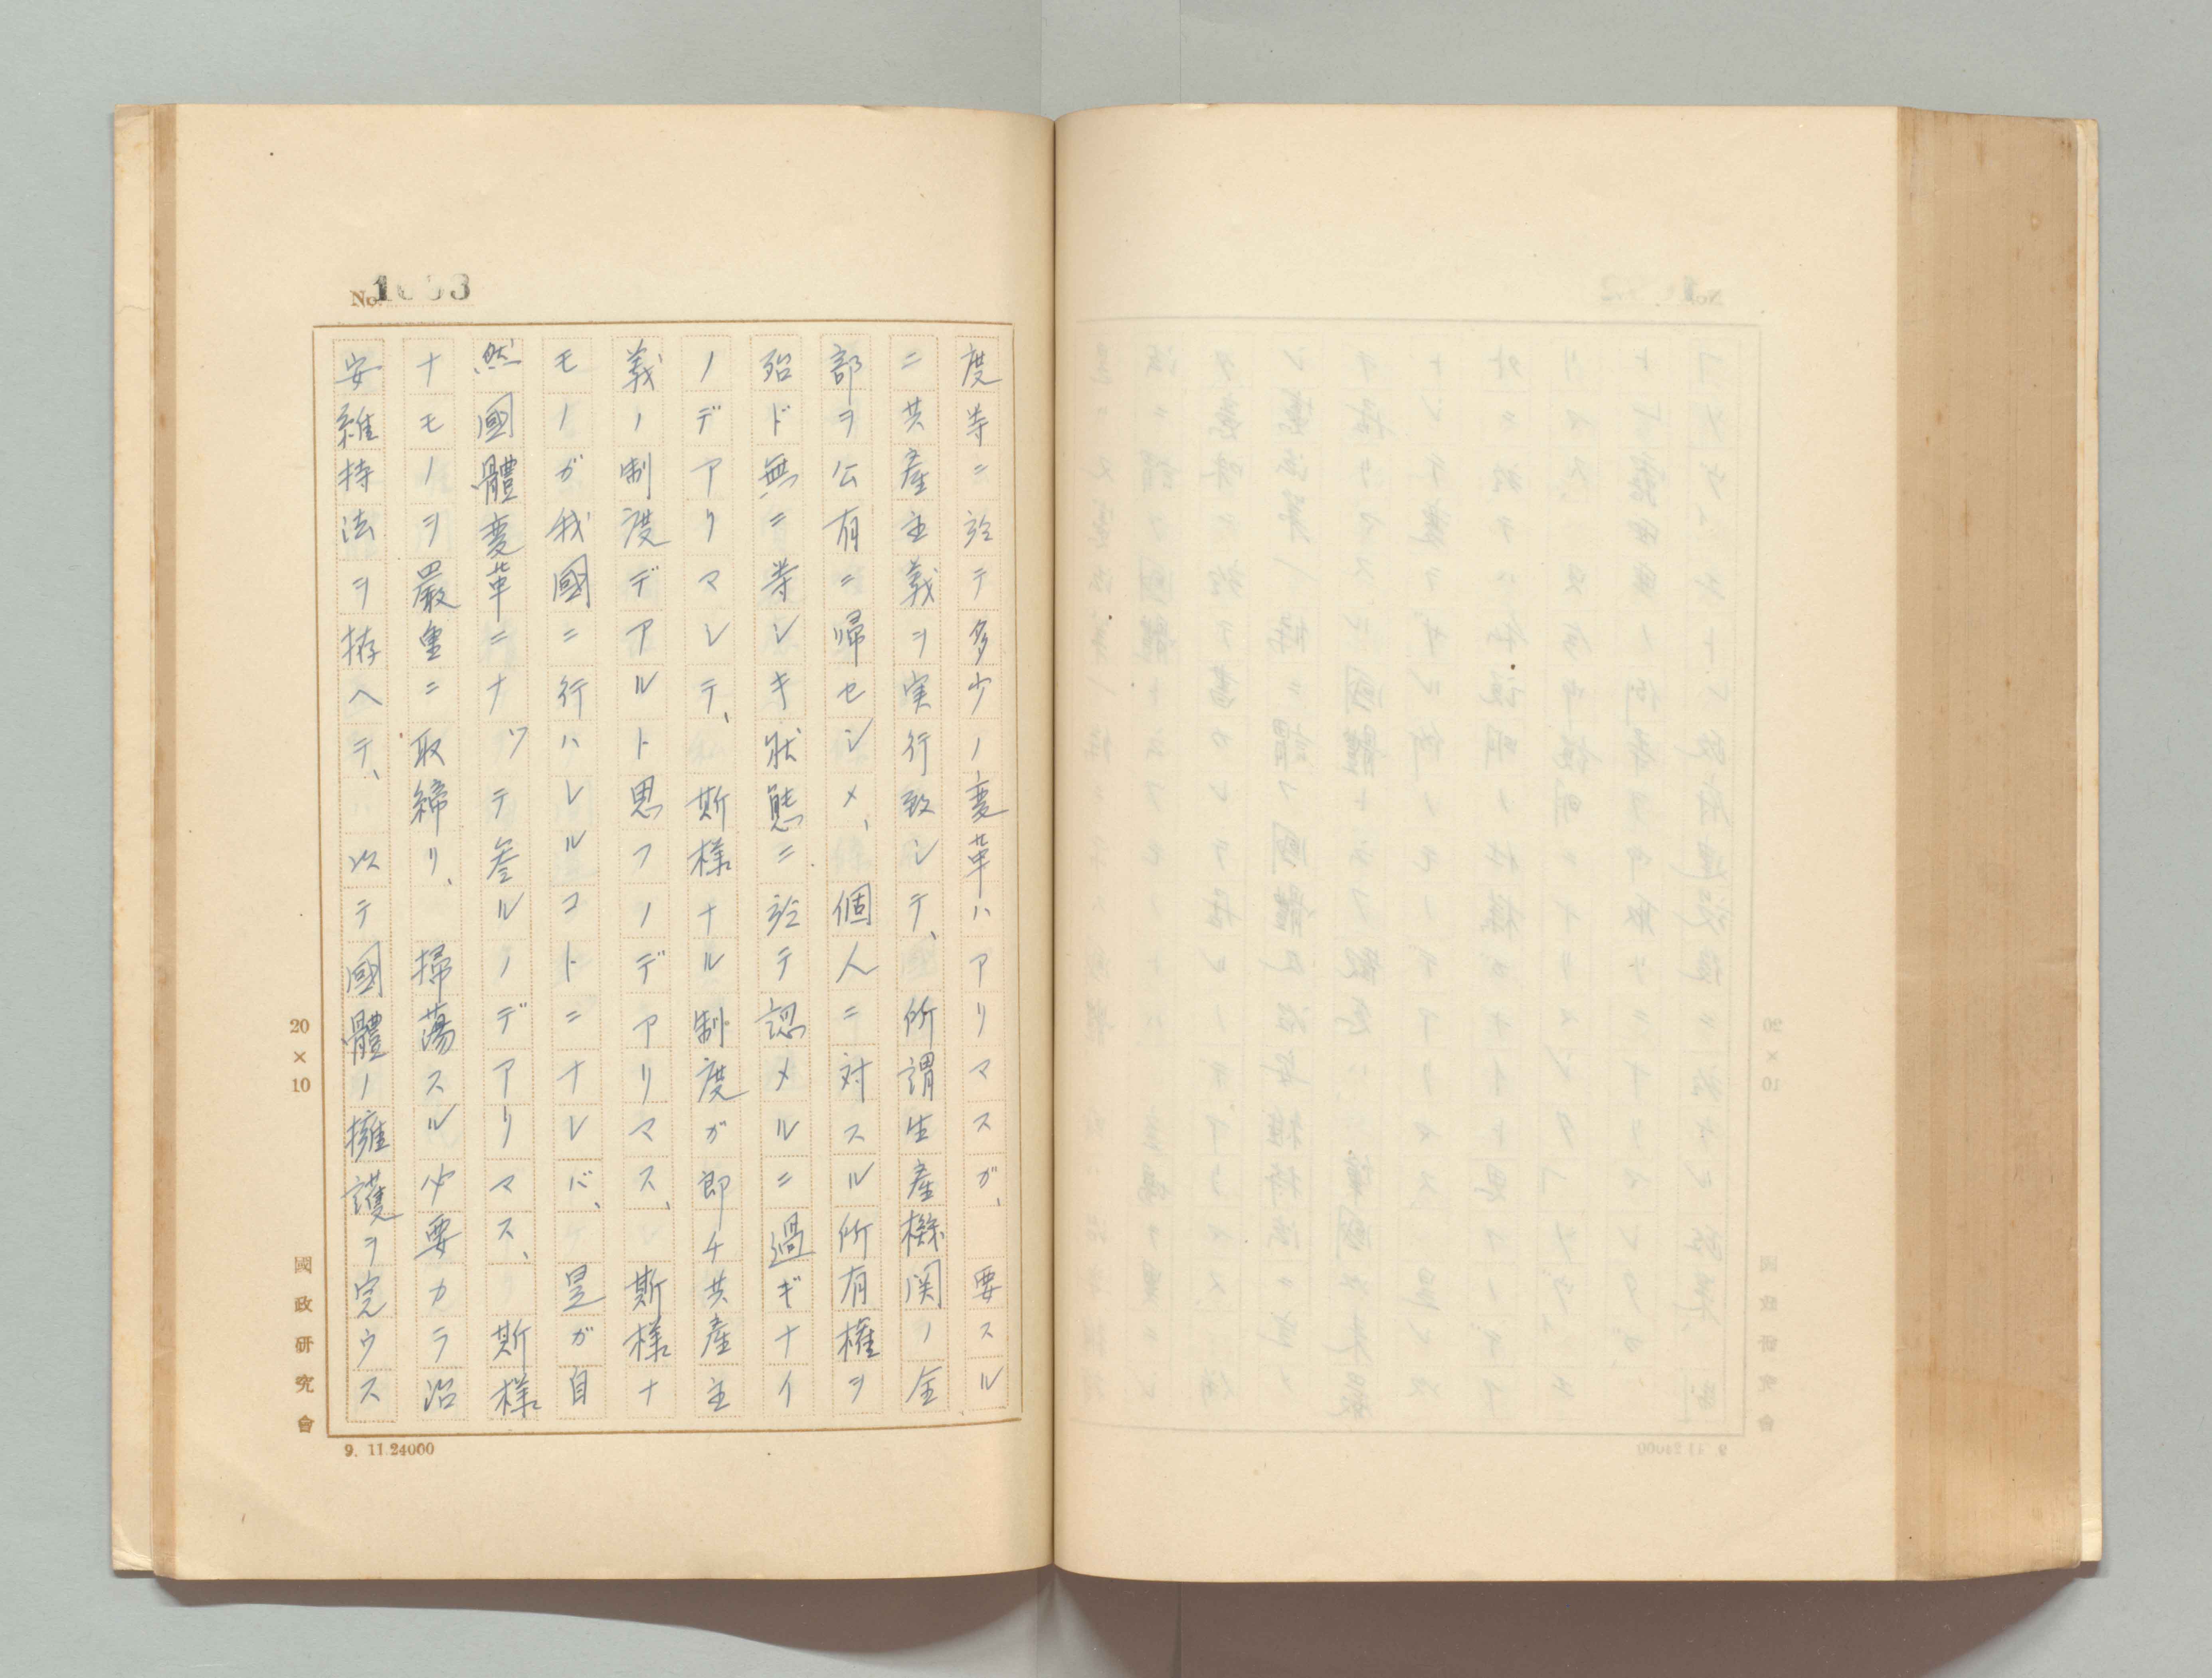 度等ニ於テ多少ノ變革ハアリマスガ、要スル
ニ共産主義ヲ実行致シテ、所謂生産機関ノ全
部ヲ公有ニ帰セシメ、個人ニ対スル所有権ヲ
殆ド無ニ等シキ狀態ニ於テ認メルニ過ギナイ
ノデアリマシテ、斯様ナル制度ガ即チ共産主
義ノ制度デアルト思フノデアリマス、斯様ナ
モノガ我國ニ行ハレルコトニナレバ、是ガ自
然國體變革ニナツテ参ルノデアリマス、斯様
ナモノヲ嚴重ニ取締リ、掃蕩スル必要カラ治
安維持法ヲ拵ヘテ、以テ國體ノ擁護ヲ完ウス
20×10
國政研究會
9. 11.24000